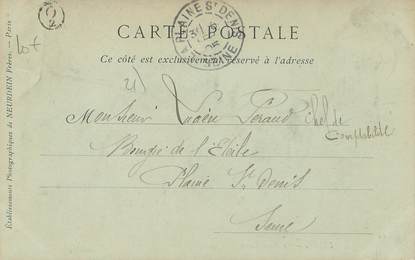 CARTE POSTALE
Ce côté est exclusivement réservé à l'adresse
LA PLAINE ST DENIS
SEINE
05
2
lot
21)
Monsieur Eugène Peraud chef de
Comptabilité
Bougie de l'Etoile
Plaine St Denis
Seine
Etablissements Photographiques de NEURDEIN Frères. — Paris